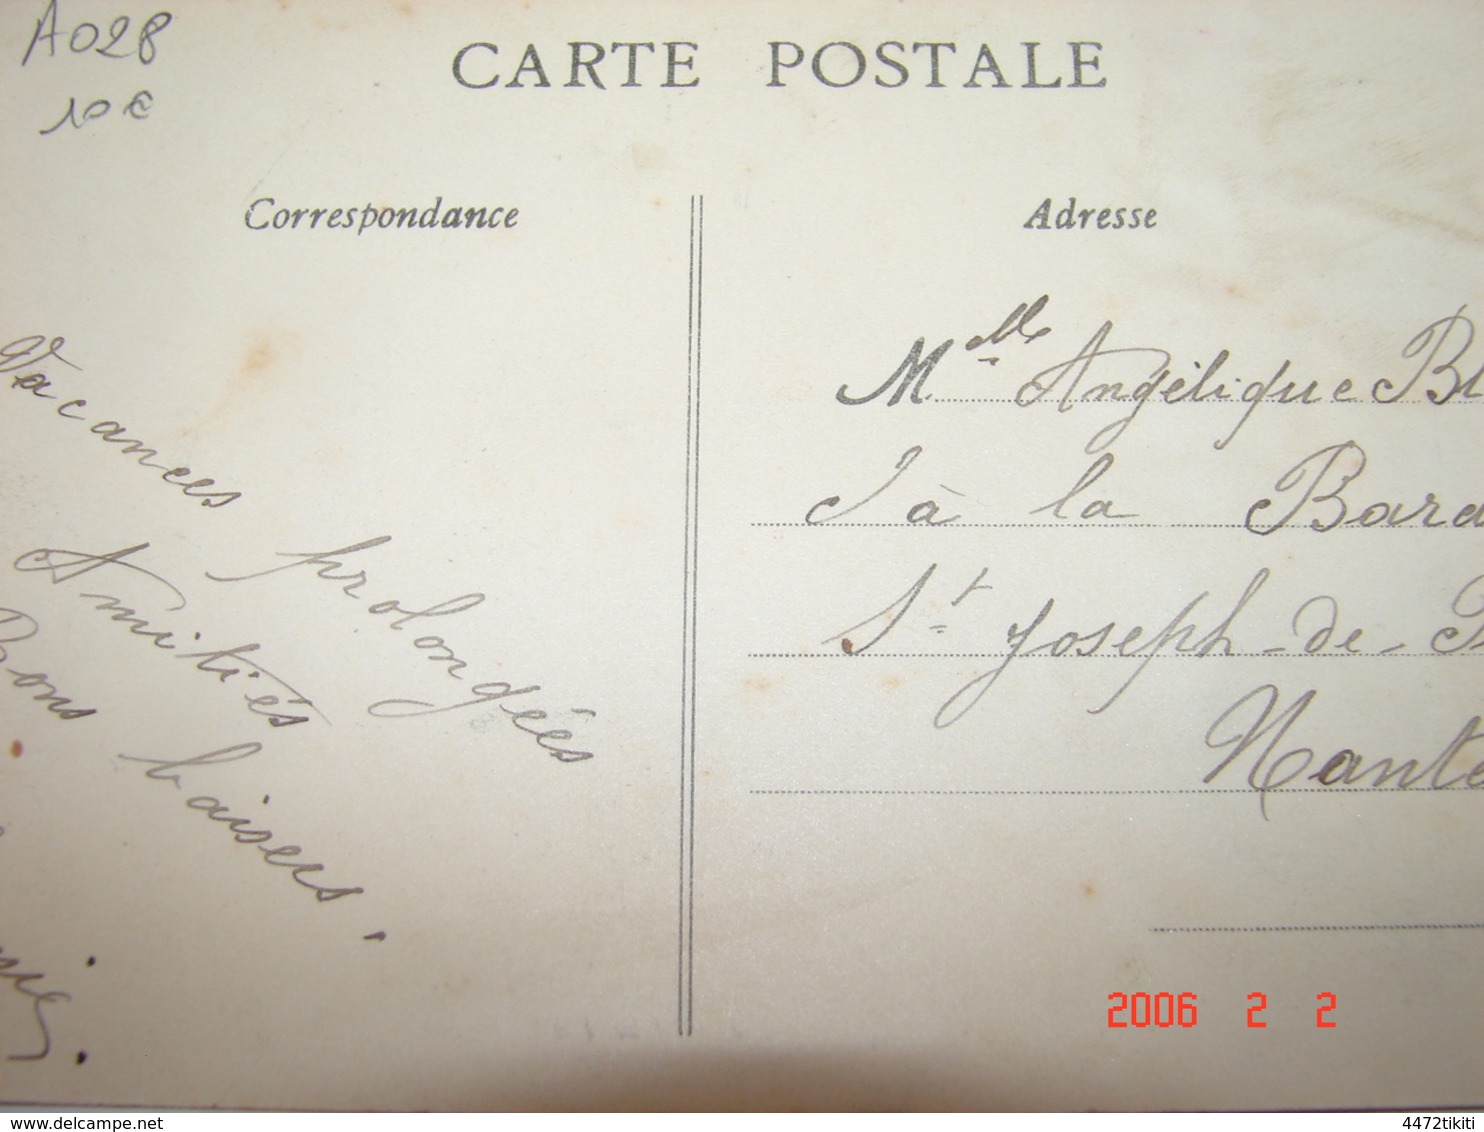 A028
10 €
CARTE POSTALE
Correspondance
Adresse
Vacances prolongées
Amitiés
Bons baisers.
Mlle Angélique Bl
à la Bara
St Joseph-de-P
Nante
2006 2 2
delcampe.net
4472tikiti